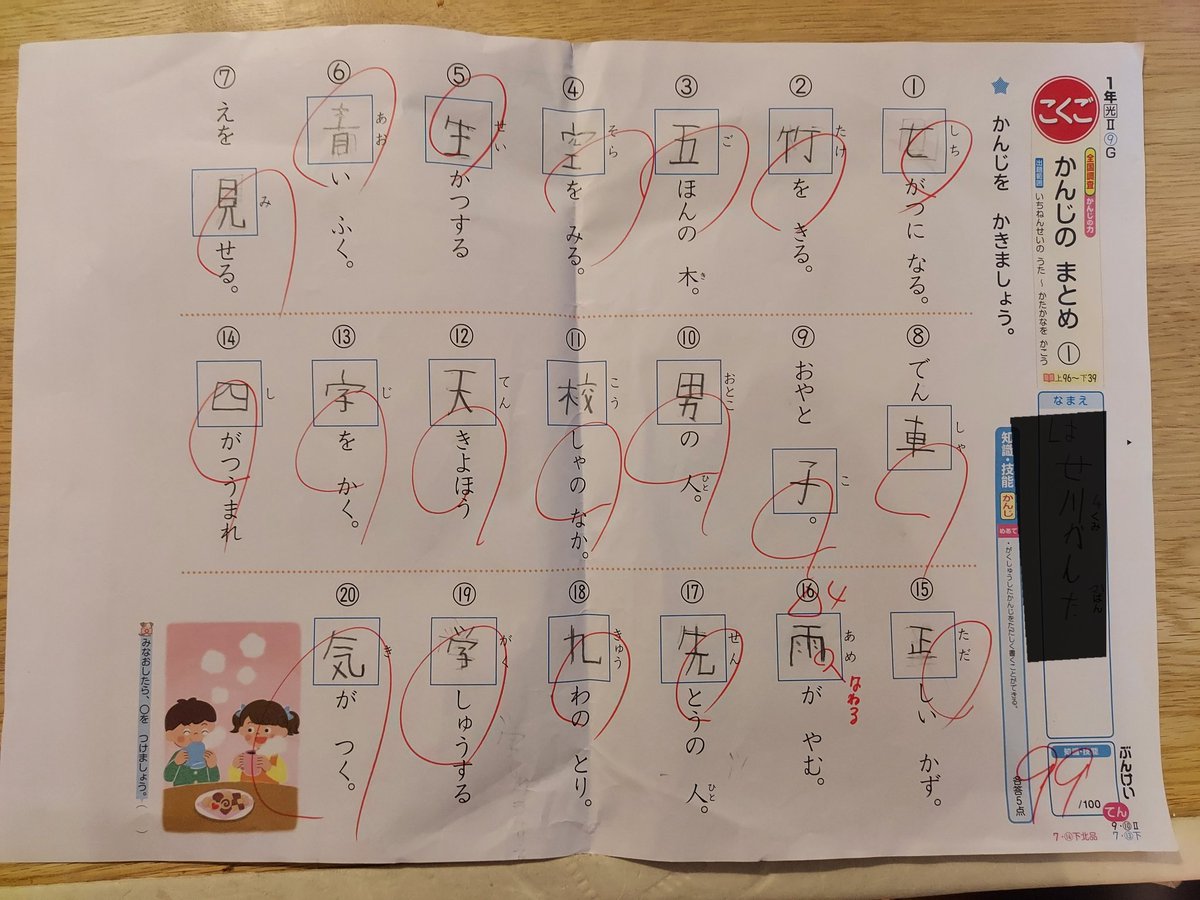 1年光Ⅱ⑨G
こくご
かんじの まとめ ①
かんじの力
いちねんせいの うた ～ かたかなを かこう
上96～下39
なまえ
知識・技能
99
/100
てん
ぶんけい
9・⑩Ⅱ
知識・技能
かんじ
めあて
・がくしゅうしたかんじをただしく書くことができる。
各答5点
★ かんじを かきましょう。
① 七がつに なる。
しち
② 竹を きる。
たけ
③ 五ほんの 木。
ご
き
④ 空を みる。
そら
⑤ 生かつする
せい
⑥ 青い ふく。
あお
⑦ えを 見せる。
み
⑧ でん車
しゃ
⑨ おやと 子。
こ
⑩ 男の 人。
おとこ
ひと
⑪ 校しゃの なか。
こう
⑫ 天きよほう
てん
⑬ 字を かく。
じ
⑭ 四がつうまれ
し
⑮ 正しい かず。
ただ
⑯ 雨が やむ。
あめ
4
はねる
⑰ 先とうの 人。
せん
ひと
⑱ 九わの とり。
きゅう
⑲ 学しゅうする
がく
⑳ 気が つく。
き
みなおしたら、○を つけましょう。( )